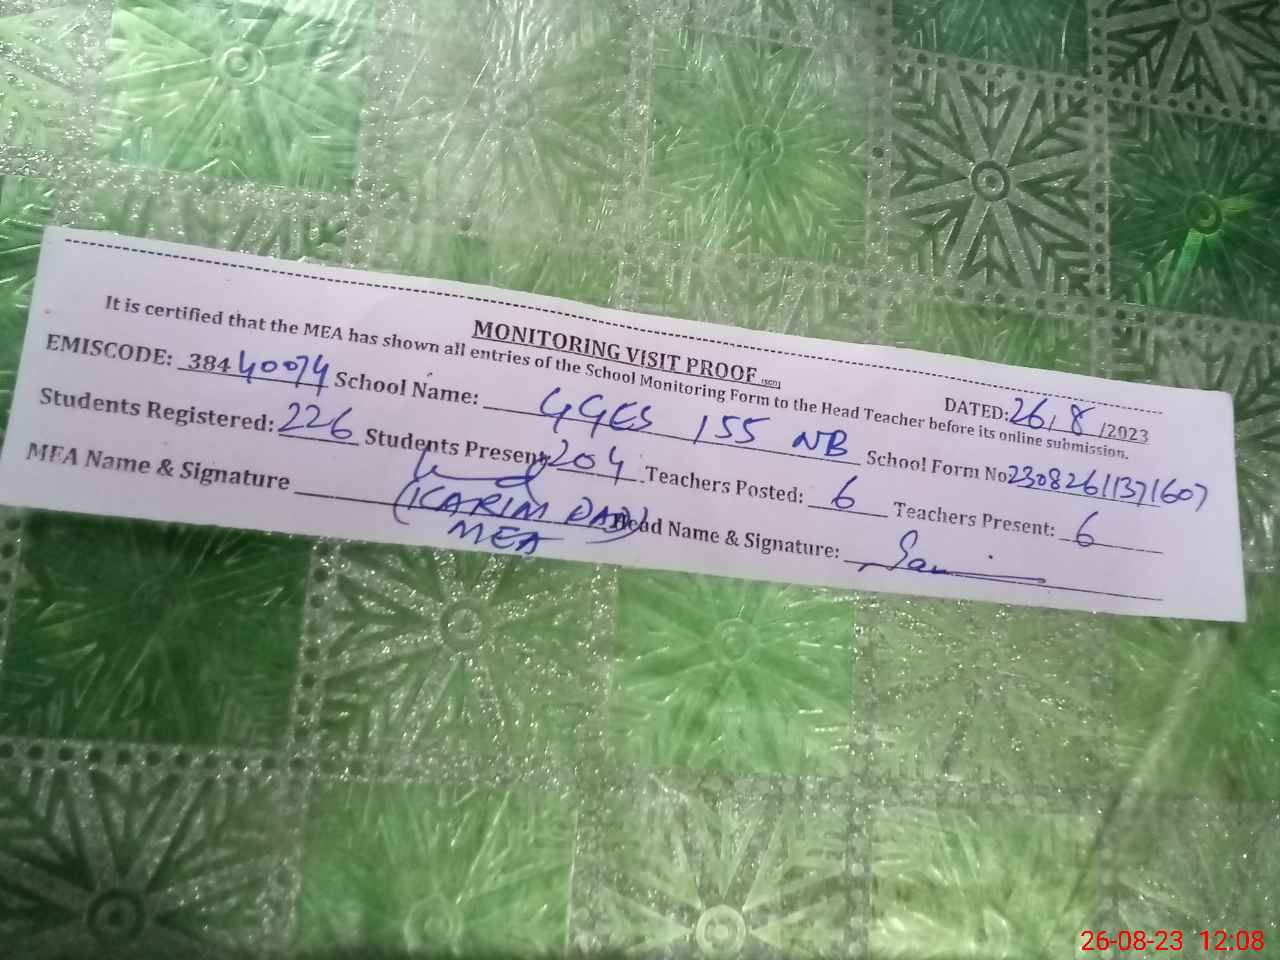 MONITORING VISIT PROOF (SED)
DATED: 26/8/2023
It is certified that the MEA has shown all entries of the School Monitoring Form to the Head Teacher before its online submission.
EMISCODE: 38440074 School Name: GGES 155 NB School Form No 23082611371607
Students Registered: 226 Students Present: 204 Teachers Posted: 6 Teachers Present: 6
MEA Name & Signature (KARIM DAD) Head Name & Signature:
MEA
26-08-23 12:08